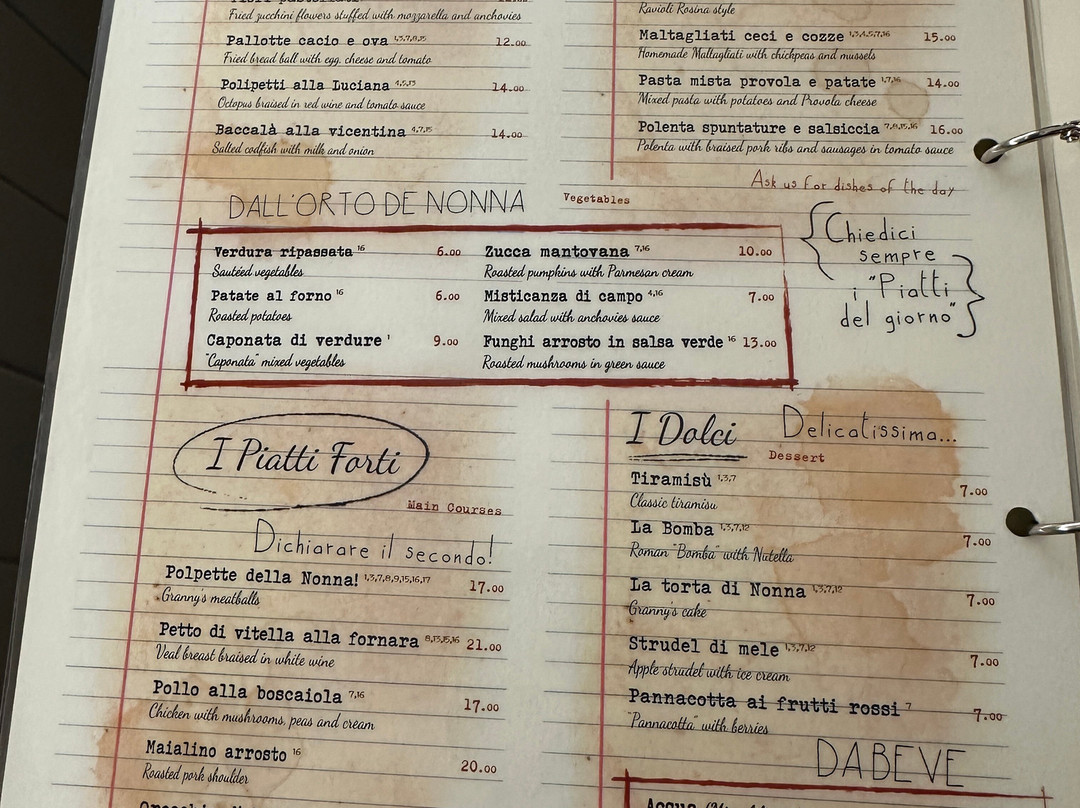 Fried zucchini flowers stuffed with mozzarella and anchovies
Pallotte cacio e ova 1,3,7,8,15 12.00
Fried bread ball with egg, cheese and tomato
Polipetti alla Luciana 4,9,13 14.00
Octopus braised in red wine and tomato sauce
Baccalà alla vicentina 4,7,15 14.00
Salted codfish with milk and onion
Ravioli Rosina style
Maltagliati ceci e cozze 1,3,4,5,7,16 15.00
Homemade Maltagliati with chickpeas and mussels
Pasta mista provola e patate 1,7,16 14.00
Mixed pasta with potatoes and Provola cheese
Polenta spuntature e salsiccia 7,8,15,16 16.00
Polenta with braised pork ribs and sausages in tomato sauce
Ask us for dishes of the day
DALL'ORTO DE NONNA Vegetables
Verdura ripassata 16 6.00
Sauteéd vegetables
Patate al forno 16 6.00
Roasted potatoes
Caponata di verdure 1 9.00
"Caponata" mixed vegetables
Zucca mantovana 7,16 10.00
Roasted pumpkins with Parmesan cream
Misticanza di campo 4,16 7.00
Mixed salad with anchovies sauce
Funghi arrosto in salsa verde 16 13.00
Roasted mushrooms in green sauce
Chiedici
sempre
i "Piatti
del giorno"
I Piatti Forti
Main Courses
Dichiarare il secondo!
Polpette della Nonna! 1,3,7,8,9,15,16,17 17.00
Granny's meatballs
Petto di vitella alla fornara 8,13,15,16 21.00
Veal breast braised in white wine
Pollo alla boscaiola 7,16 17.00
Chicken with mushrooms, peas and cream
Maialino arrosto 16 20.00
Roasted pork shoulder
I Dolci Delicatissima...
Dessert
Tiramisù 1,3,7 7.00
Classic tiramisu
La Bomba 1,3,7,12 7.00
Roman "Bomba" with Nutella
La torta di Nonna 1,3,7,12 7.00
Granny's cake
Strudel di mele 1,3,7,12 7.00
Apple strudel with ice cream
Pannacotta ai frutti rossi 7 7.00
"Pannacotta" with berries
DABEVE